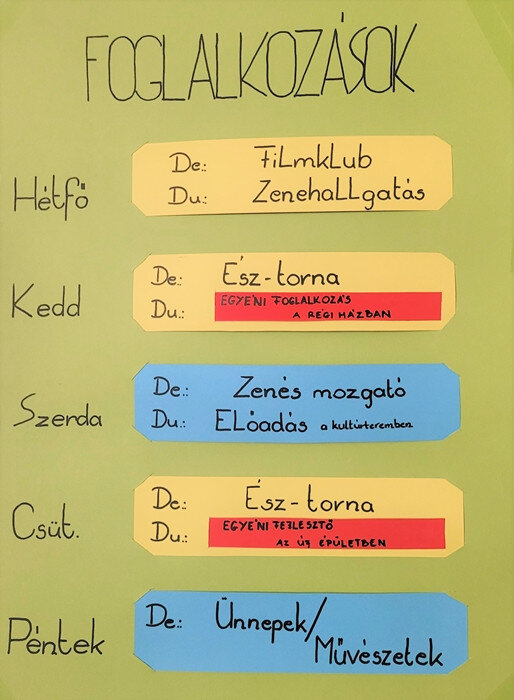 FOGLALKOZÁSOK
Hétfő
De.: FiLmkLub
Du.: ZenehaLLgatás
Kedd
De.: Ész-torna
Du.: EGYÉNI FOGLALKOZÁS
A RÉGI HÁZBAN
Szerda
De.: Zenés mozgató
Du.: ELőadás a kultúrteremben
Csüt.
De.: Ész-torna
Du.: EGYÉNI FEJLESZTŐ
AZ ÚJ ÉPÜLETBEN
Péntek
De.: Ünnepek/
Művészetek